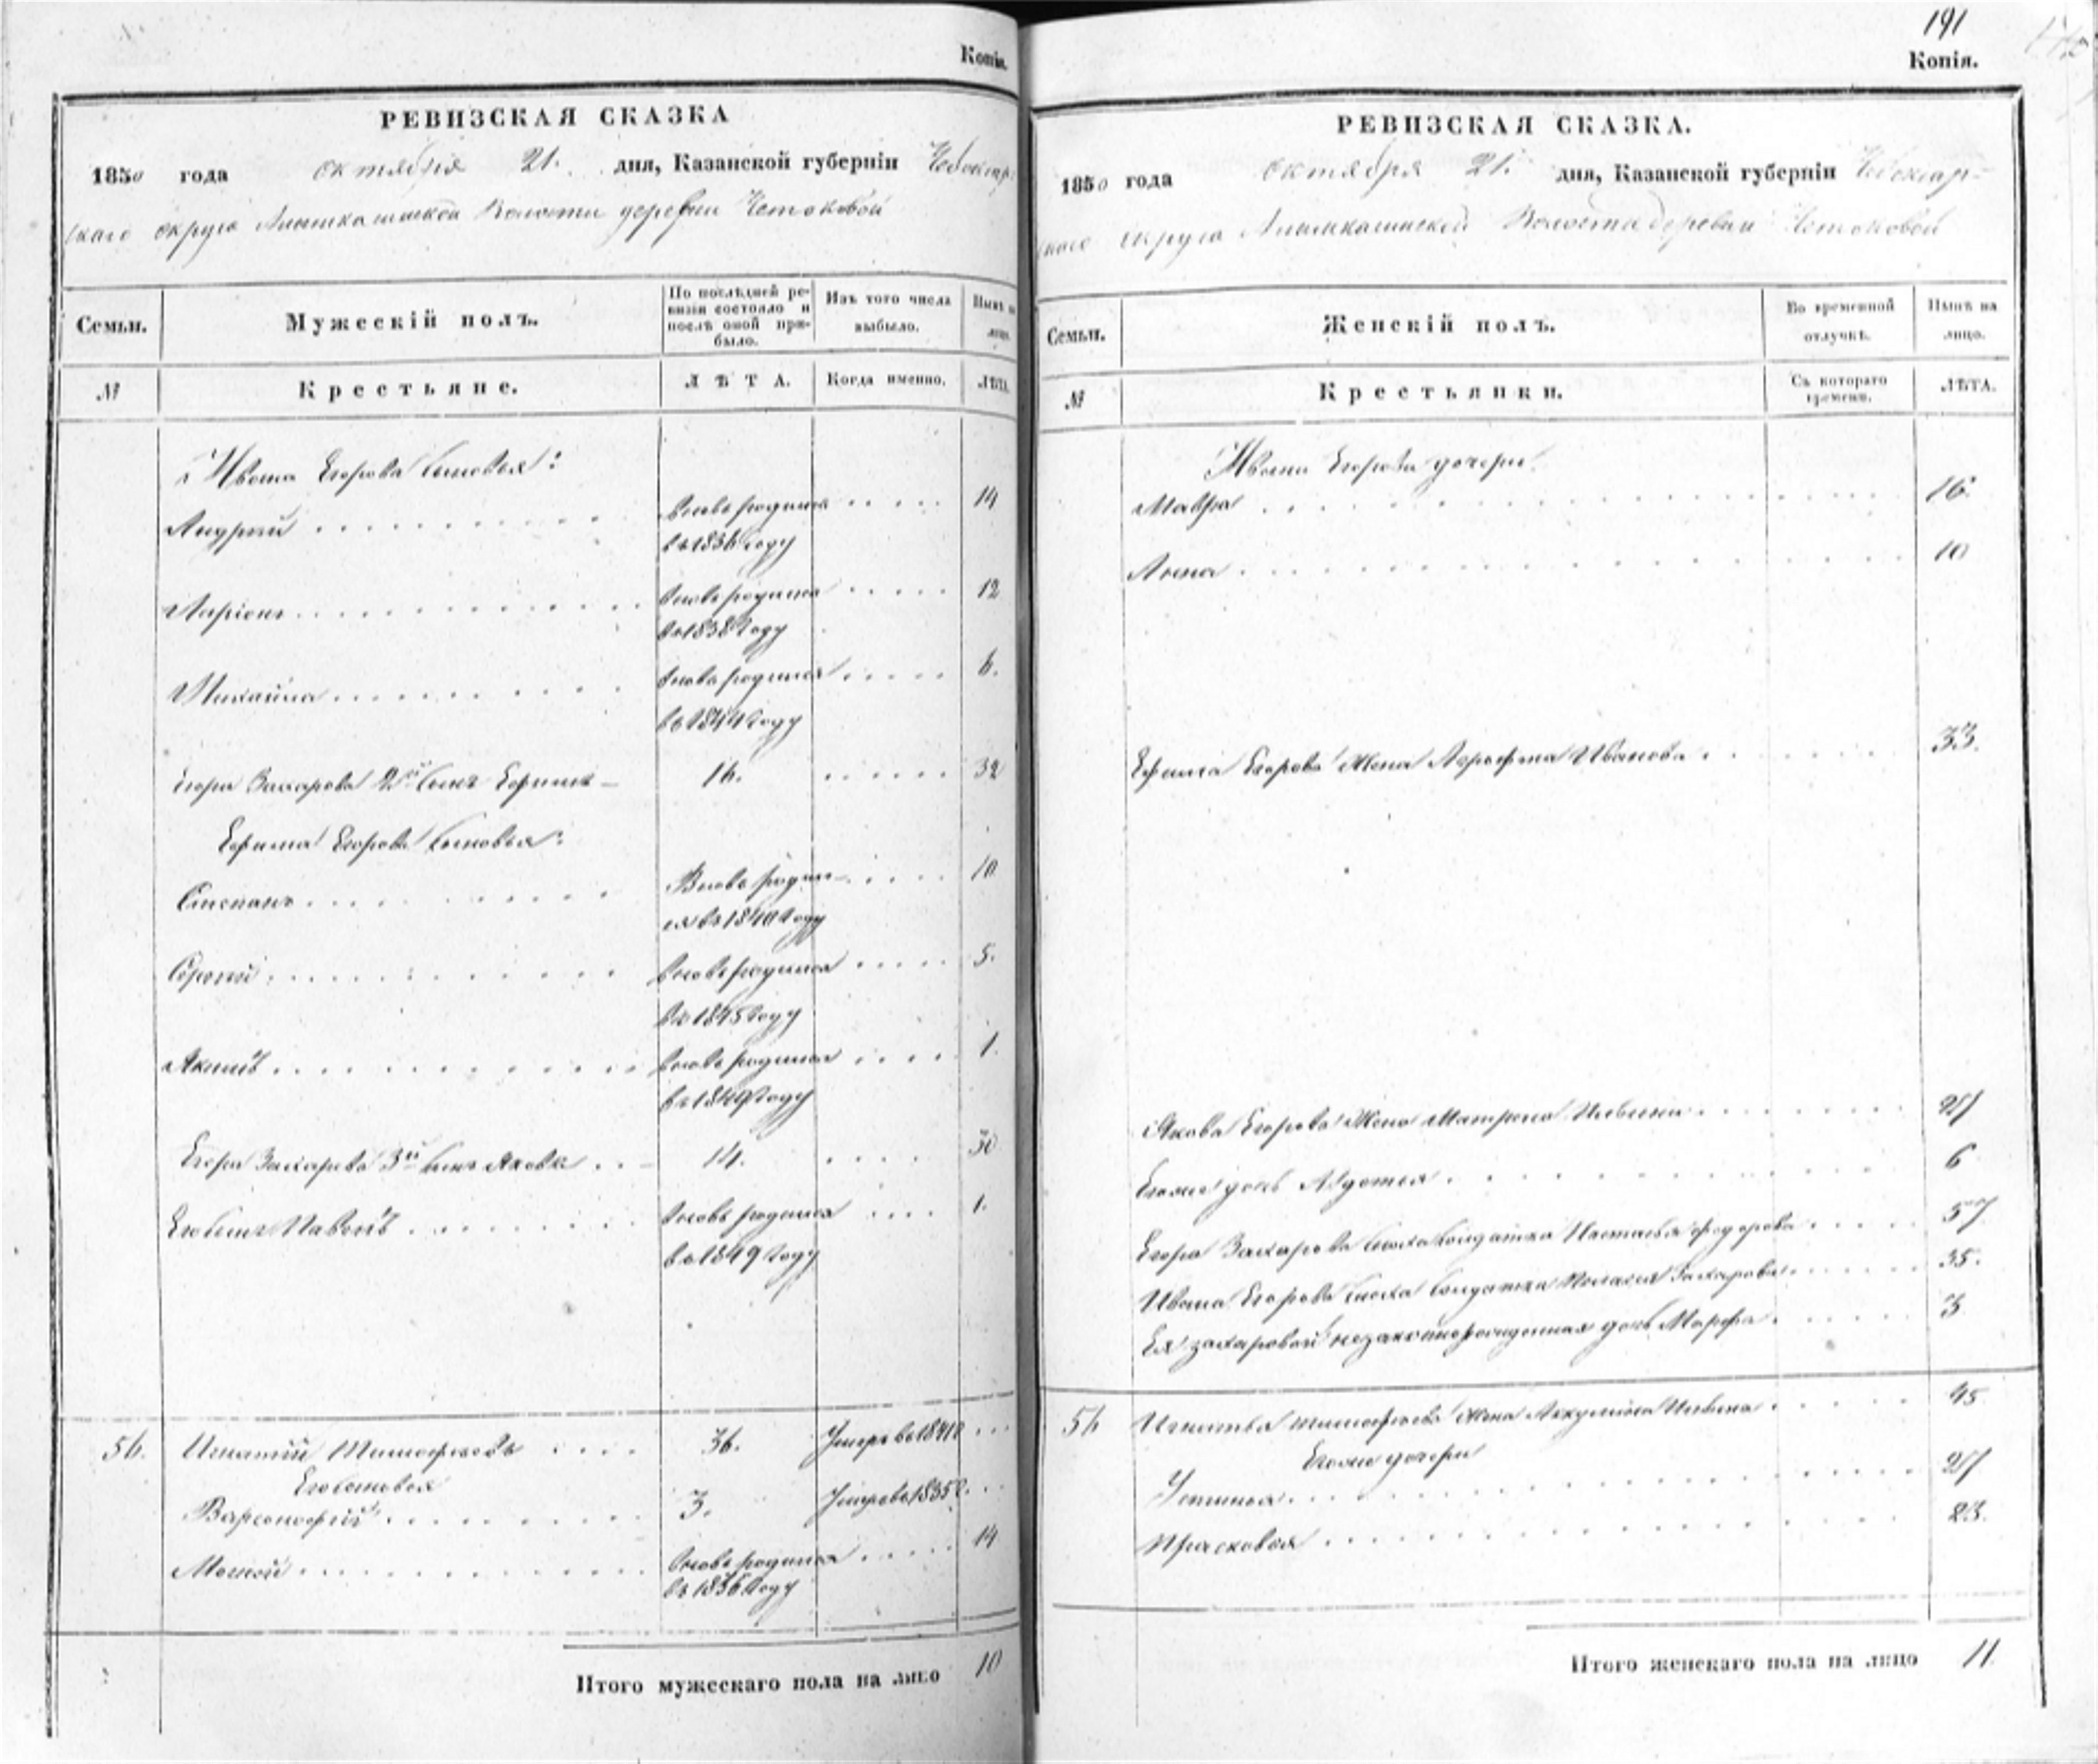 Копія.
РЕВИЗСКАЯ СКАЗКА
1850 года октября 21. дня, Казанской губерніи Чебоксар-
скаго округа Алымкасинской Волости деревни Четоковой
Семьи.
Мужескій полъ.
По послѣдней ре-
визіи состояло и
послѣ оной при-
было.
Изъ того числа
выбыло.
Нынѣ на
лицо.
№
Крестьяне.
ЛѢТА.
Когда именно.
ЛѢТА.
Ивана Егорова сыновья:
Андрей вновь родился 14
въ 1836 году
Ларіонъ вновь родился 12
въ 1838 году
Михайла вновь родился 6.
въ 1844 году
Егора Захарова 2й сынъ Ефимъ 16. 32
Ефима Егорова сыновья:
Степанъ Вновь родил- 10
ся въ 1840 году
Сергей вновь родился 5.
въ 1845 году
Якимъ вновь родился 1.
въ 1849 году
Егора Захарова 3й сынъ Яковъ 14. 30
Его сынъ Павелъ вновь родился 1.
въ 1849 году
56. Игнатій Тимофеевъ 36. Умеръ въ 1841
Его сыновья
Варсонофій 3. Умеръ въ 1835
Мокей вновь родился 14
въ 1836 году
Итого мужескаго пола на лицо 10
191
Копія.
РЕВИЗСКАЯ СКАЗКА.
1850 года октября 21. дня, Казанской губерніи Чебоксар-
скаго округа Алымкасинской Волости деревни Четоковой
Семьи.
Женскій полъ.
Во временной
отлучкѣ.
Нынѣ на
лицо.
№
Крестьянки.
Съ котораго
времени.
ЛѢТА.
Ивана Егорова дочери:
Мавра 16.
Анна 10
Ефима Егорова жена Агрофена Иванова 33.
Якова Егорова жена Матрена Ильина 27
Егоже дочь Авдотья 6
Егора Захарова сноха солдатка Настасья Федорова 57
Ивана Егорова сноха солдатка Пелагея Захарова 35.
Ея Захаровой незаконнорожденная дочь Марфа 3
56 Игнатья Тимофеева жена Акулина Ильина 45
Егоже дочери
Устинья 27
Прасковья 23.
Итого женскаго пола на лицо 11.